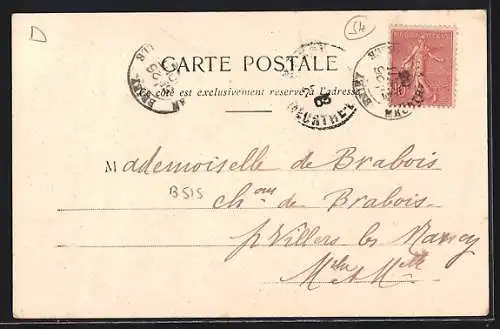 D
54
CARTE POSTALE
Ce côté est exclusivement réservé à l'adresse
BRIEY
BRIEY
MEURTHE-
Mademoiselle de Brabois
B515
Ch au de Brabois
p. Villers les Nancy
Mthe et Mlle